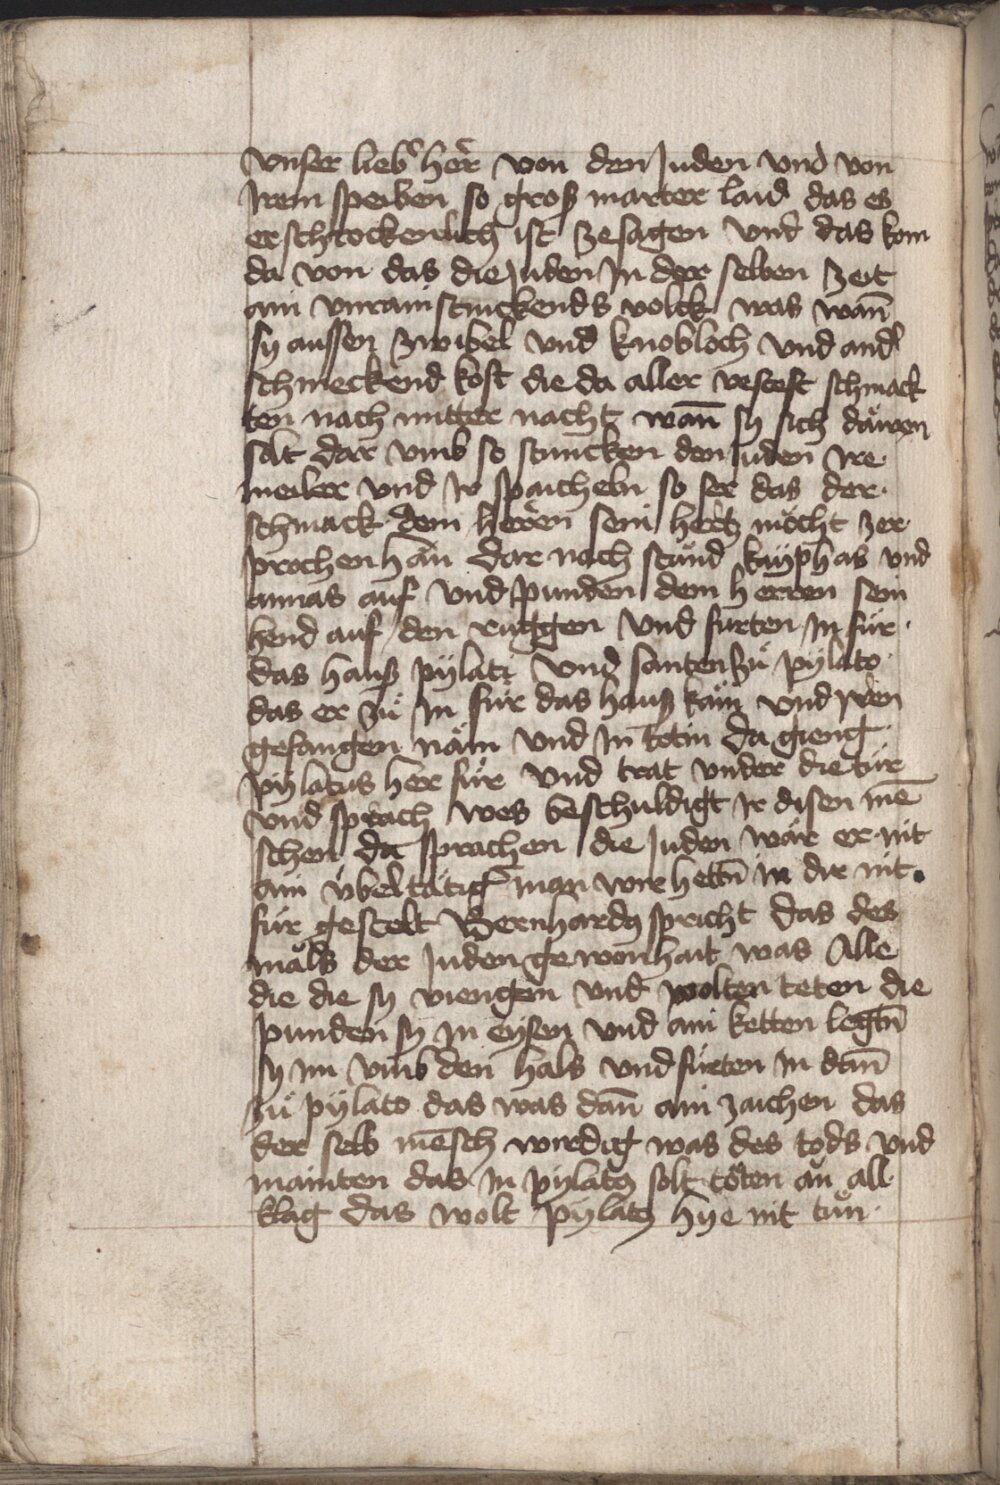 vnser lieb' her̃ von den Juden vnd von
Jrem speiben so groß marter laid das es
erschrockenlich ist zesagen vnd das kom
da von das die Juden Jn der selben zeit
ain vnrain stinckends volck was wañ
sy aussen zwibel vnd knobloch vnd and'
schmeckend kost die da aller vestest schmack
ten nach mitter nacht wañ sy sich däwen
solt dar vmb so stuncken den Juden Jre
meiler vnd Jr spaicheln so ser das der
schmack dem herren sein hertz möcht zer
prochen han dar nach stůnd kayphas vnd
annas auf vnd punden dem herren sein
hend auf den ruggen vnd furten Jn für
das hauß pÿlati vnd santen zů pÿlato
das er zů Jn für das hauß käm vnd den
gefangen näm vnd Jn totin da gieng
pÿlatus her für vnd trat vnder die tür
vnd sprach wes beschuldigt Jr disen mē
schen da sprachen die Juden wär er nit
ain v̈beltätig' man wir hettñ in dir nit
für gestelt Bernhardꝯ spricht das des
måls der Juden gewonhait was Alle
die die sy viengen vnd wolten teten die
punden sy in eÿsen vnd ain ketten legtñ
sy im vmb den hals vnd fürten in dañ
zů pÿlato das was dañ ain zaichen das
der selb mēsch wirdig was des tods vnd
mainten das in pÿlatꝯ solt töten an all
klag das wolt pÿlatꝯ hye nit tůn